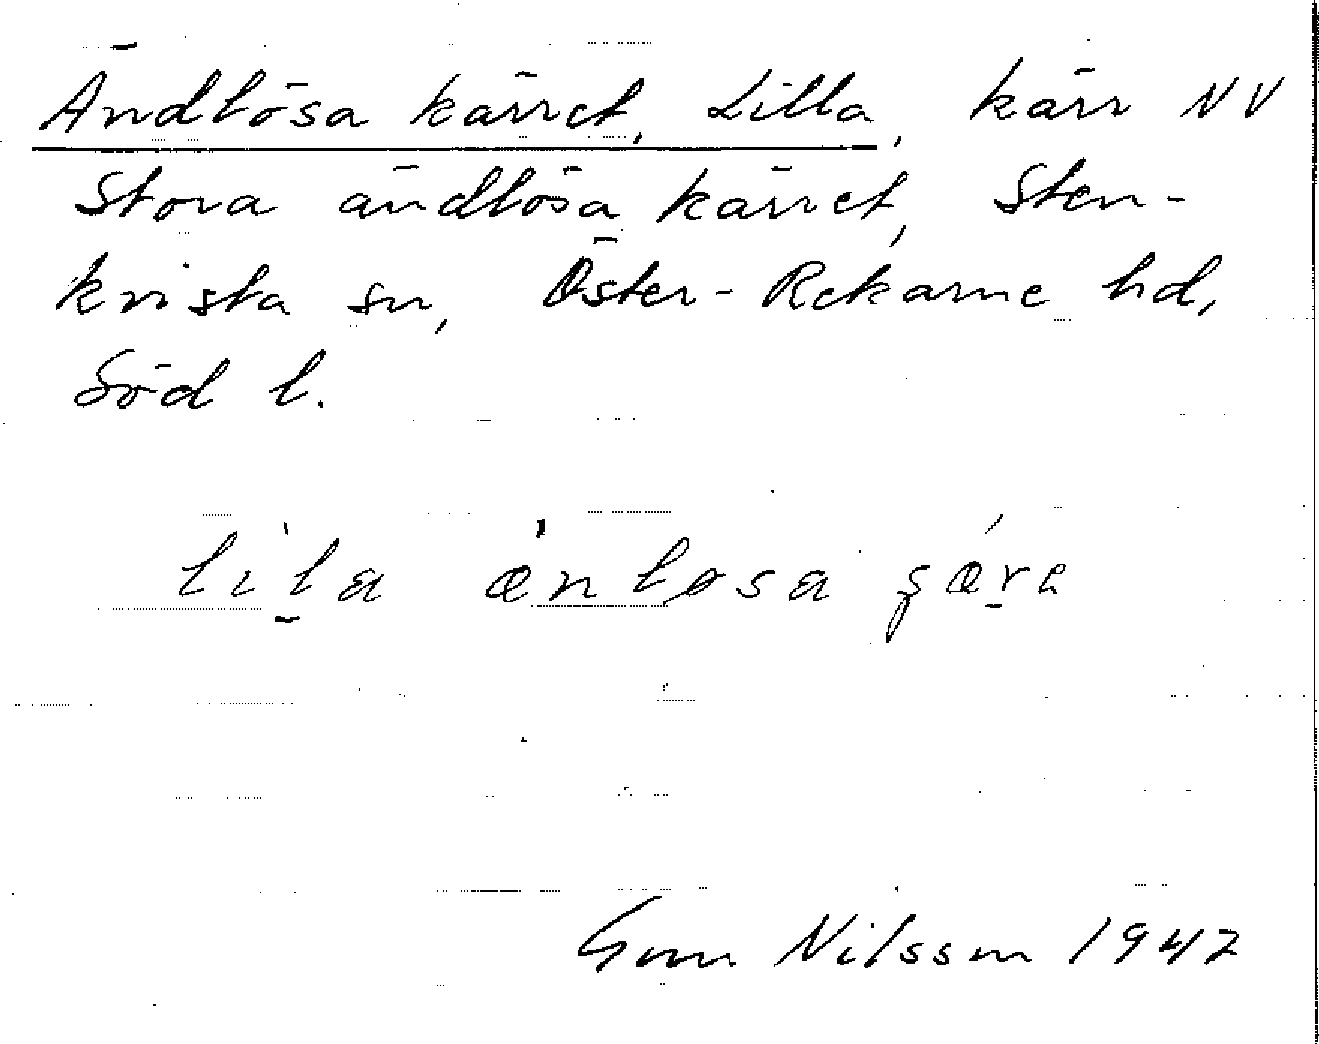 Ändlösa kärret, Lilla, kärr NV
Stora ändlösa kärret, Sten-
kvista sn, Öster-Rekarne hd,
Söd l.
lìl̠a ǽnløsa çǽr̠e
Gun Nilsson 1947